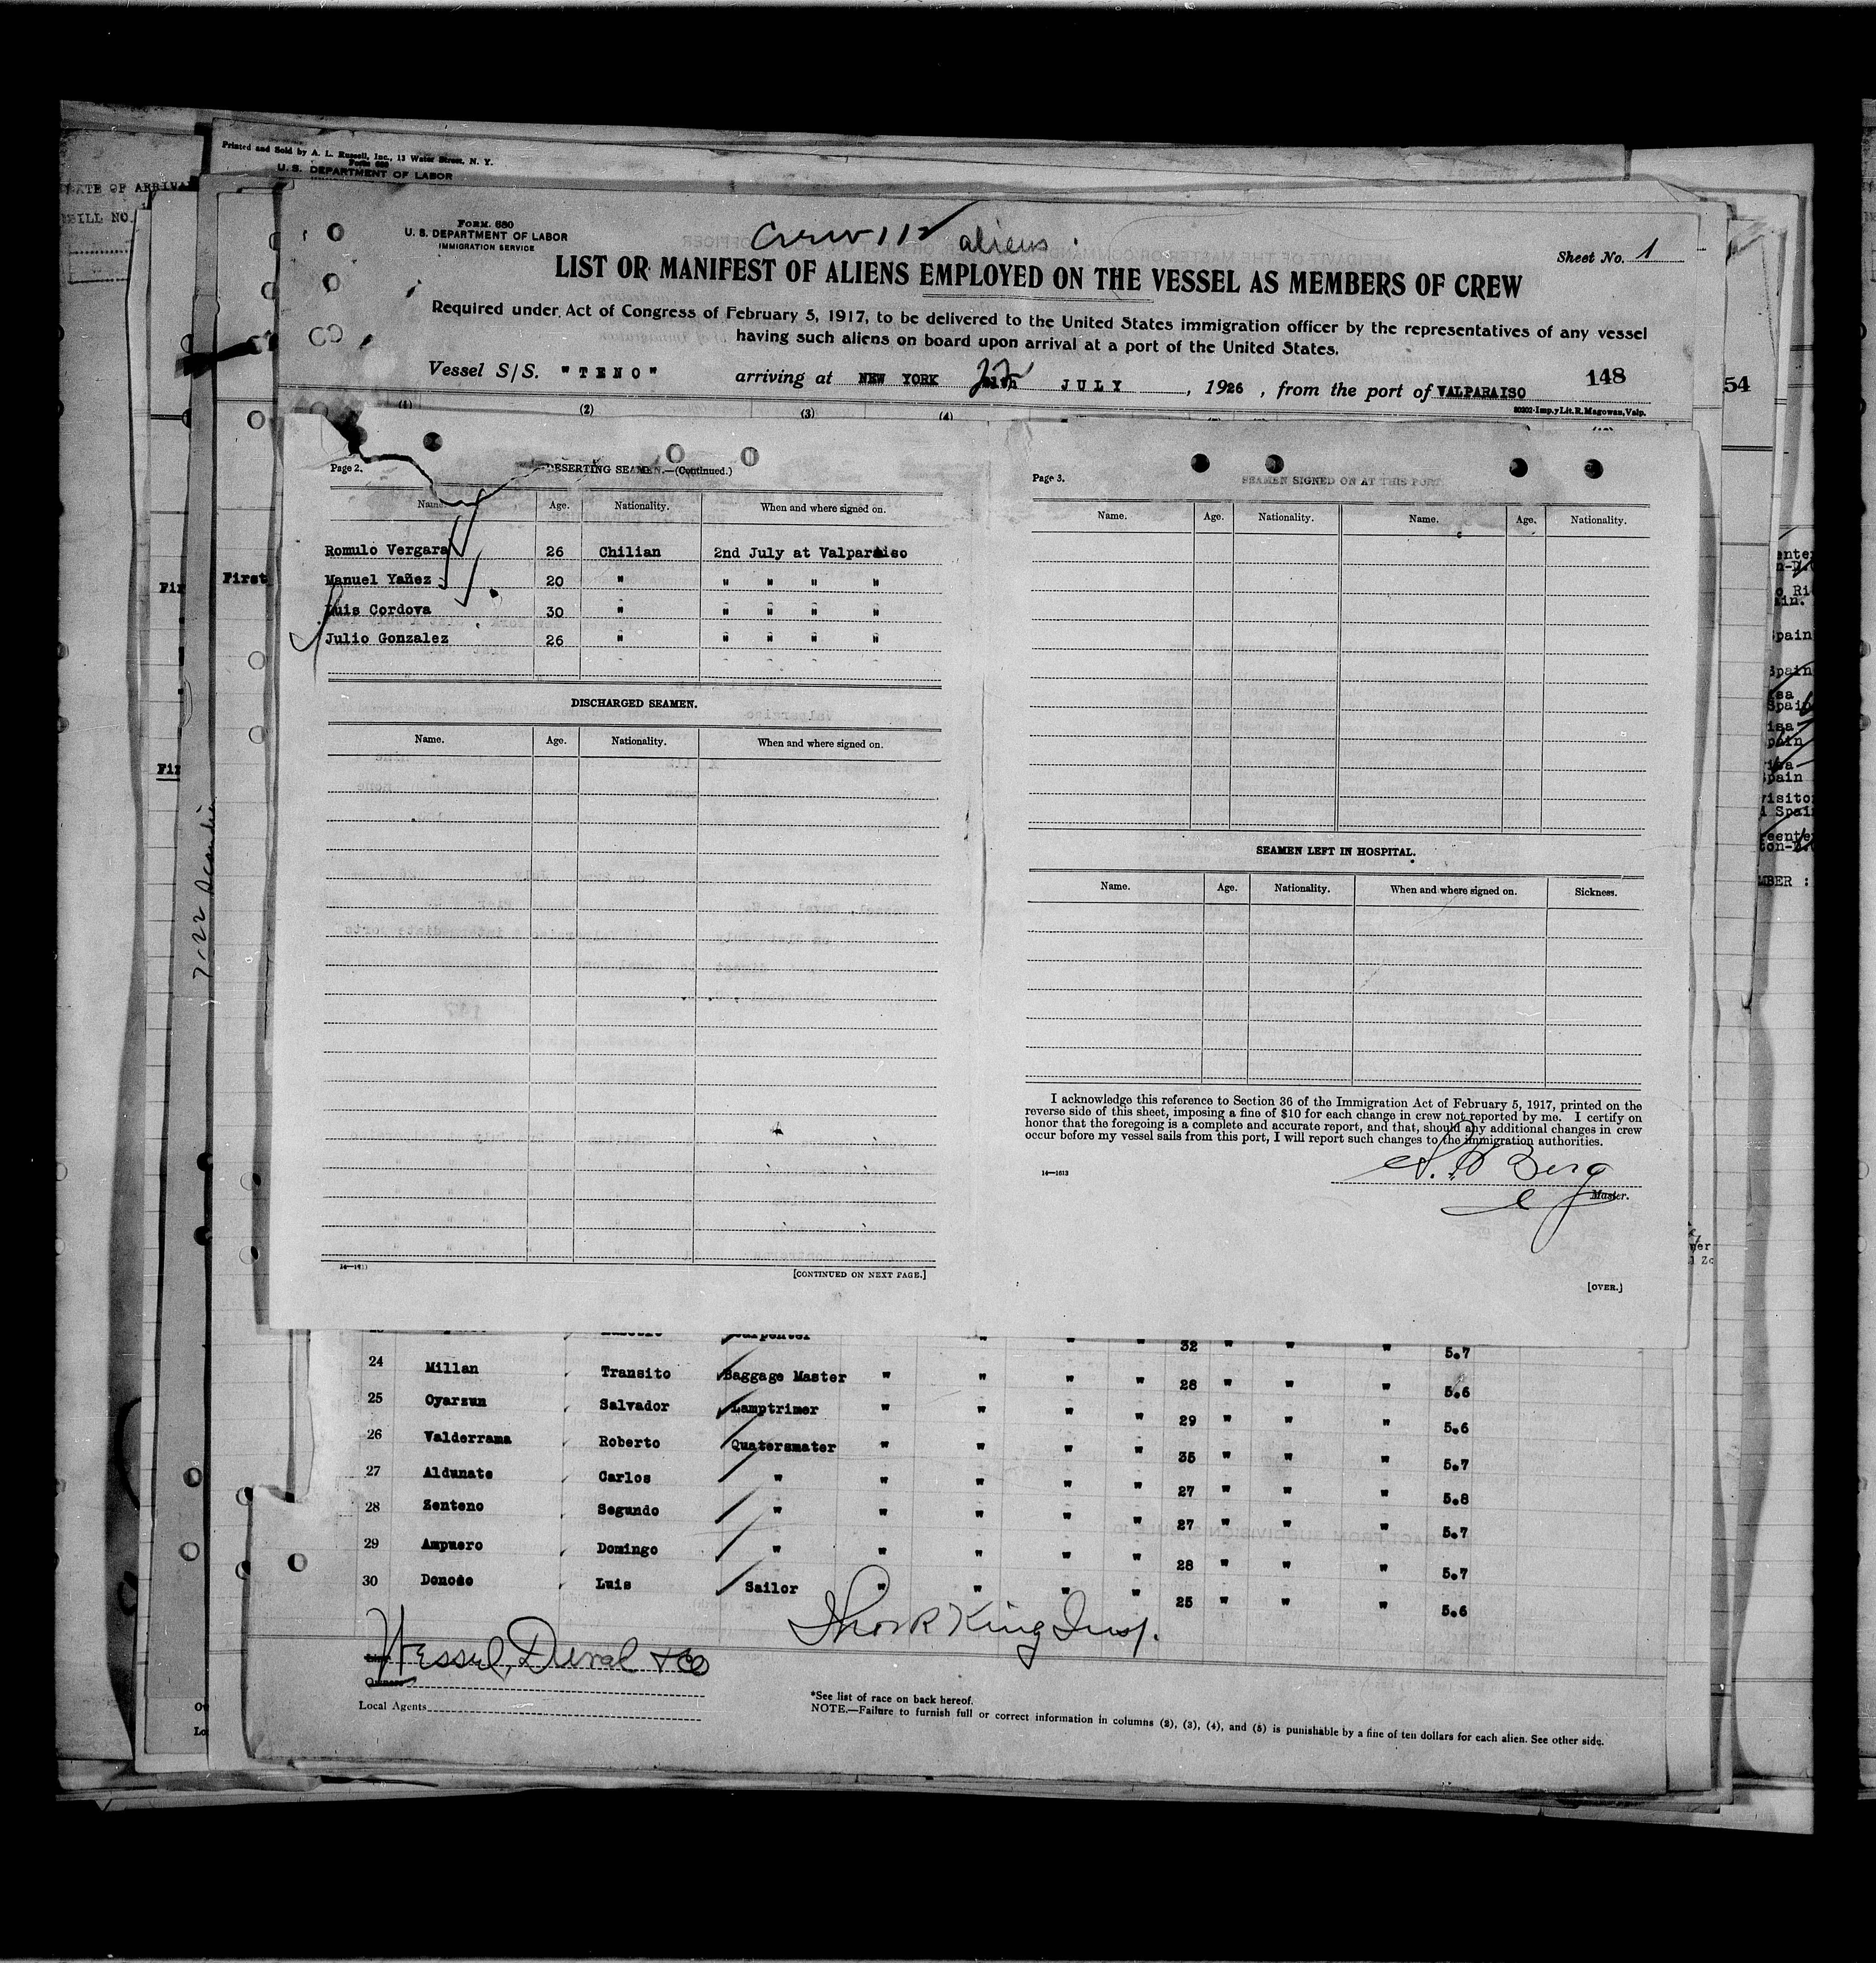 Printed and Sold by A. L. Russell, Inc., 13 Water Street, N. Y.
Form 680
U. S. DEPARTMENT OF LABOR
DATE OF ARRIVAL
BILL NO.
FORM. 680
U. S. DEPARTMENT OF LABOR
IMMIGRATION SERVICE
Crew 112 aliens
Sheet No. 1
LIST OR MANIFEST OF ALIENS EMPLOYED ON THE VESSEL AS MEMBERS OF CREW
Required under Act of Congress of February 5, 1917, to be delivered to the United States immigration officer by the representatives of any vessel
having such aliens on board upon arrival at a port of the United States.
Vessel S/S. "TENO" arriving at NEW YORK JULY, 1926, from the port of VALPARAISO
148
54
80202-Imp.y Lit.R.Magowan,Valp.
(1) (2) (3) (4)
Page 2.
DESERTING SEAMEN.—(Continued.)
Name. Age. Nationality. When and where signed on.
Romulo Vergara 26 Chilian 2nd July at Valparaiso
Manuel Yañez 20 " " " " "
Luis Cordova 30 " " " " "
Julio Gonzalez 26 " " " " "
DISCHARGED SEAMEN.
Name. Age. Nationality. When and where signed on.
14—1613
[CONTINUED ON NEXT PAGE.]
Page 3.
SEAMEN SIGNED ON AT THIS PORT.
Name. Age. Nationality. Name. Age. Nationality.
SEAMEN LEFT IN HOSPITAL.
Name. Age. Nationality. When and where signed on. Sickness.
I acknowledge this reference to Section 36 of the Immigration Act of February 5, 1917, printed on the
reverse side of this sheet, imposing a fine of $10 for each change in crew not reported by me. I certify on
honor that the foregoing is a complete and accurate report, and that, should any additional changes in crew
occur before my vessel sails from this port, I will report such changes to the immigration authorities.
14—1613
Berg
Master.
[OVER.]
First
7-22
Carpenter 32 " " " 5.7
24 Millan Transito Baggage Master " " " " 28 " " " 5.6
25 Oyarzun Salvador Lamptrimer " " " " 29 " " " 5.6
26 Valderrama Roberto Quatersmater " " " " 35 " " " 5.7
27 Aldunate Carlos " " " " " 27 " " " 5.8
28 Zenteno Segundo " " " " " 27 " " " 5.7
29 Ampuero Domingo " " " " " 28 " " " 5.7
30 Donoso Luis Sailor " " " " 25 " " " 5.6
Wessel, Duval & Co
Thos R King Insp.
Owners
Local Agents
*See list of race on back hereof.
NOTE.—Failure to furnish full or correct information in columns (2), (3), (4), and (5) is punishable by a fine of ten dollars for each alien. See other side.